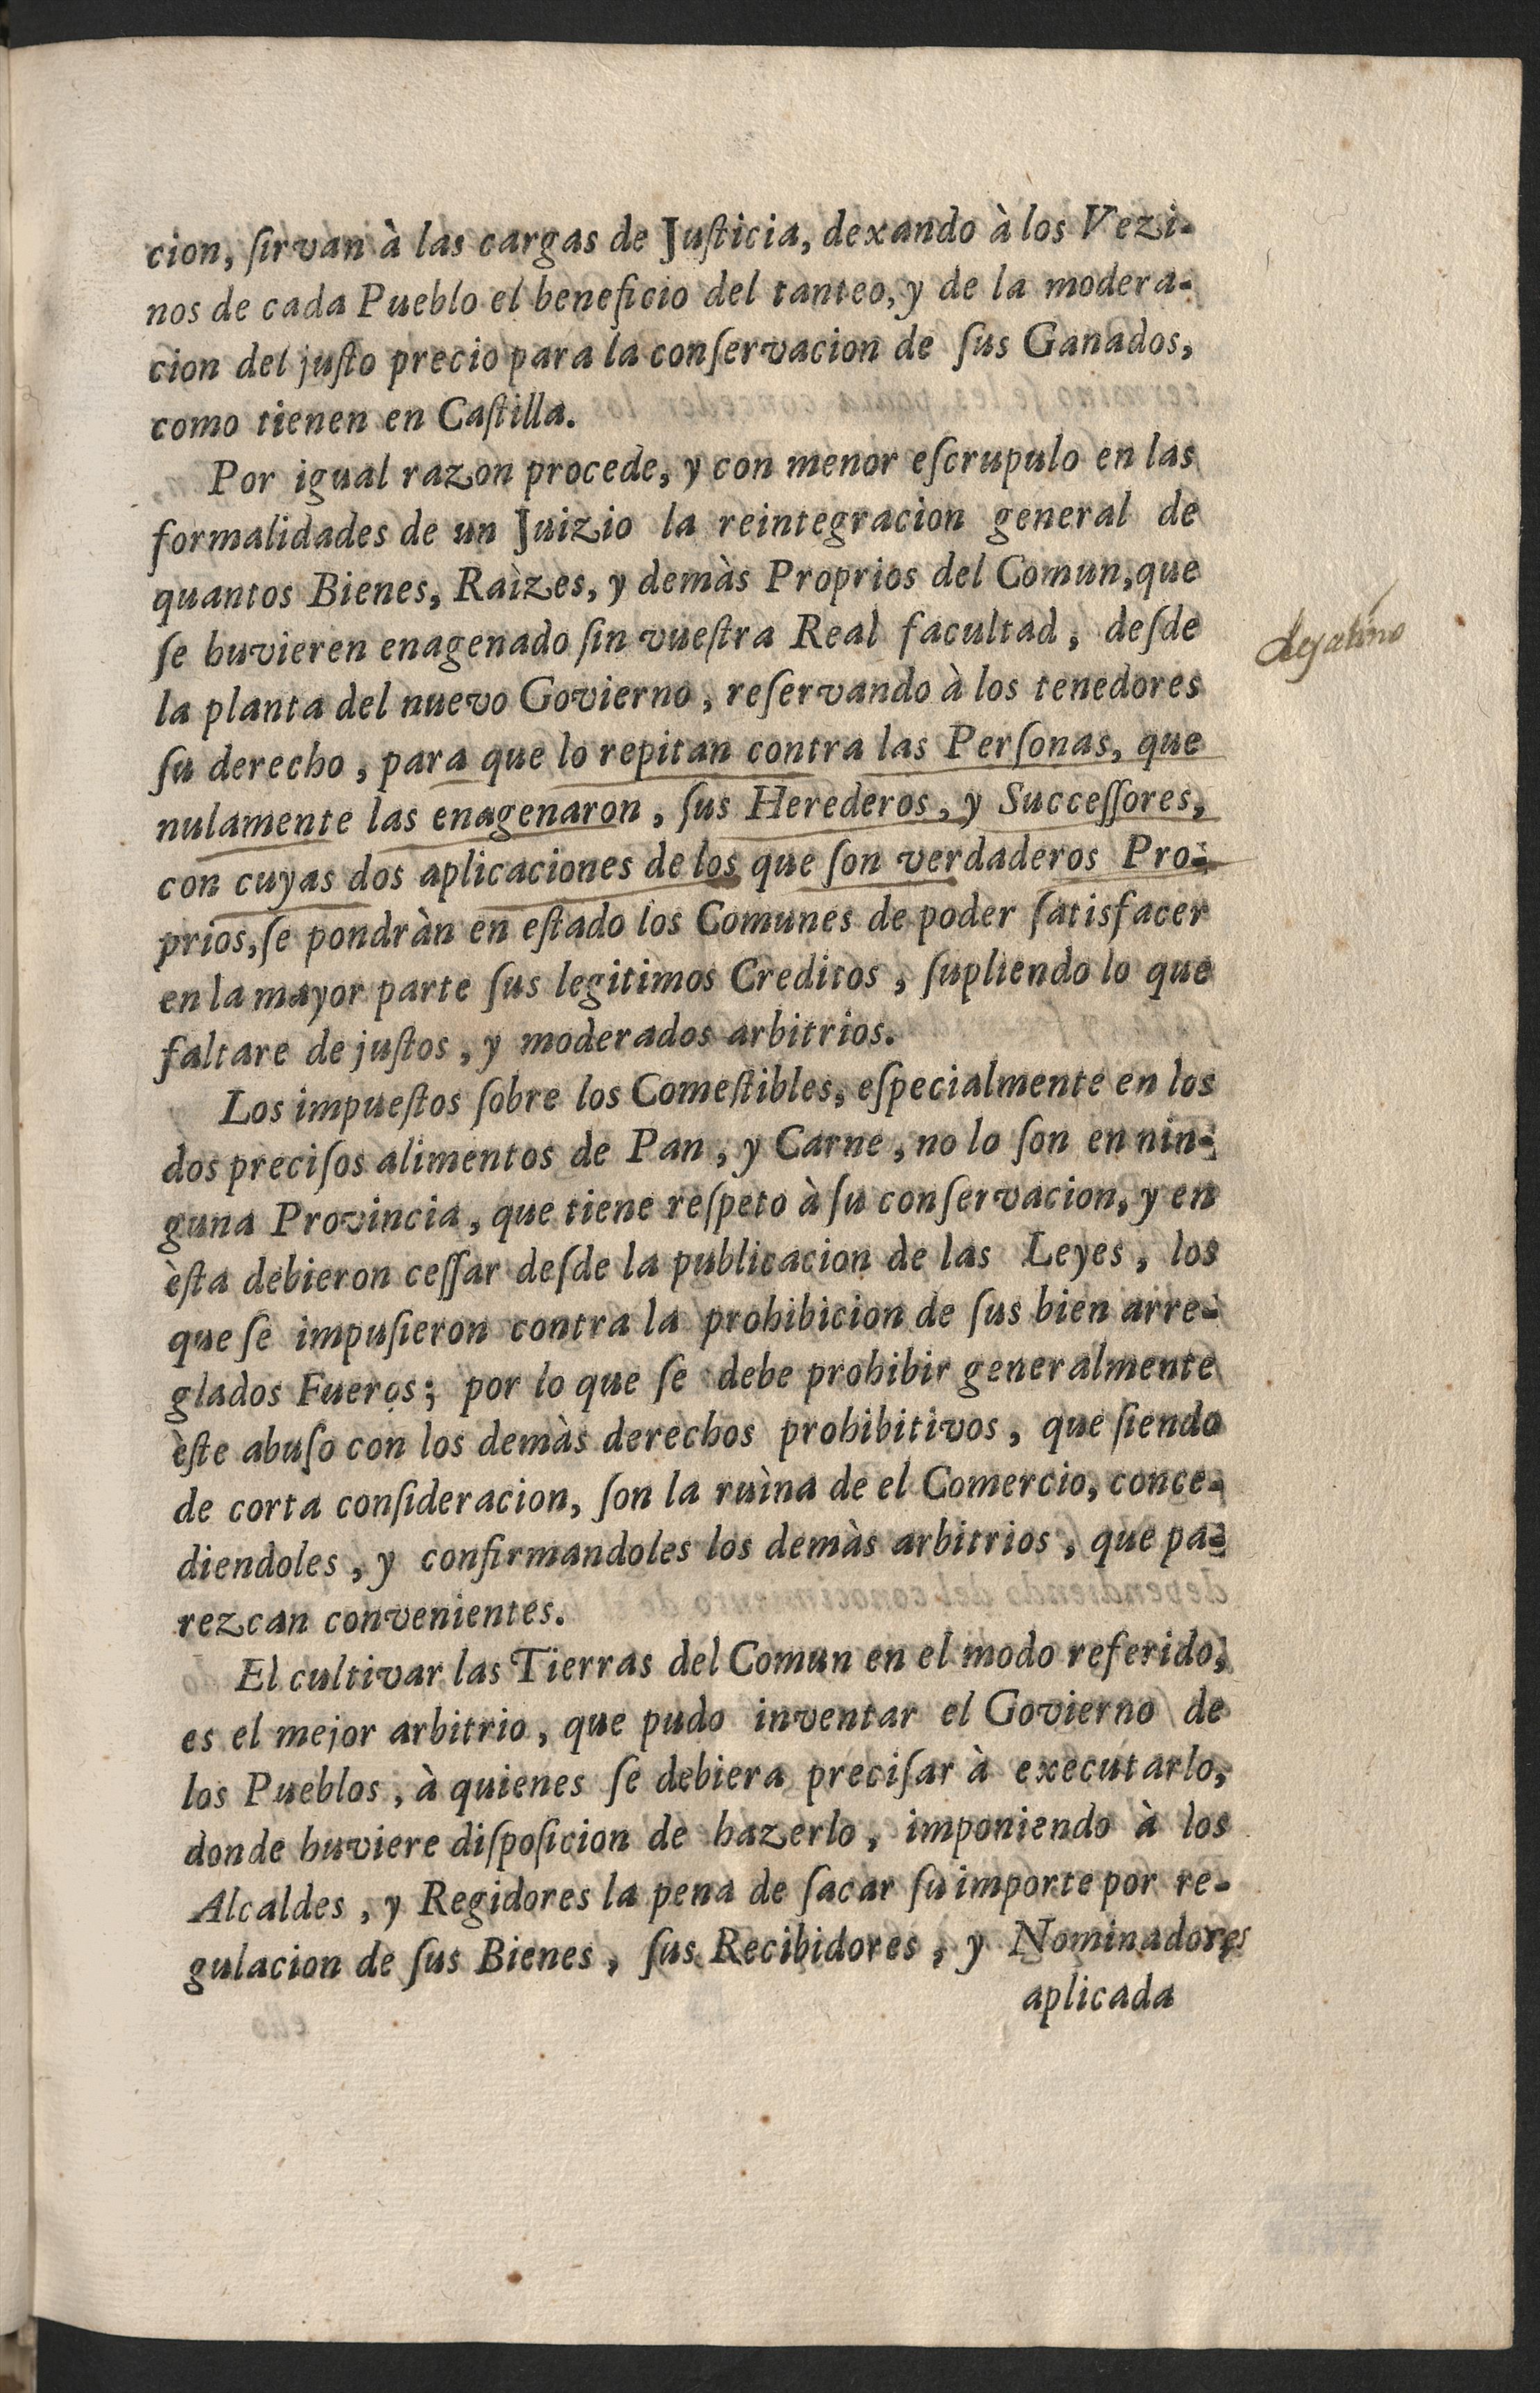 cion, ſirvan à las cargas de Juſticia, dexando à los Vezi-
nos de cada Pueblo el beneficio del tanteo, y de la modera-
cion del juſto precio para la conſervacion de ſus Ganados,
como tienen en Caſtilla.
Por igual razon procede, y con menor eſcrupulo en las
formalidades de un Juizio la reintegracion general de
quantos Bienes, Raìzes, y demàs Proprios del Comun, que
ſe huvieren enagenado ſin vueſtra Real facultad, deſde
la planta del nuevo Govierno, reſervando à los tenedores
ſu derecho, para que lo repitan contra las Perſonas, que
nulamente las enagenaron, ſus Herederos, y Succeſſores,
con cuyas dos aplicaciones de los que ſon verdaderos Pro-
prios, ſe pondràn en eſtado los Comunes de poder ſatisfacer
en la mayor parte ſus legitimos Creditos, ſupliendo lo que
faltare de juſtos, y moderados arbitrios.
Los impueſtos ſobre los Comeſtibles, eſpecialmente en los
dos preciſos alimentos de Pan, y Carne, no lo ſon en nin-
guna Provincia, que tiene reſpeto à ſu conſervacion, y en
èſta debieron ceſſar deſde la publicacion de las Leyes, los
que ſe impuſieron contra la prohibicion de ſus bien arre-
glados Fueros; por lo que ſe debe prohibir generalmente
èſte abuſo con los demàs derechos prohibitivos, que ſiendo
de corta conſideracion, ſon la ruìna de el Comercio, conce-
diendoles, y confirmandoles los demàs arbitrios, que pa-
rezcan convenientes.
El cultivar las Tierras del Comun en el modo referido,
es el mejor arbitrio, que pudo inventar el Govierno de
los Pueblos, à quienes ſe debiera preciſar à executarlo,
donde huviere diſpoſicion de hazerlo, imponiendo à los
Alcaldes, y Regidores la pena de ſacar ſu importe por re-
gulacion de ſus Bienes, ſus Recibidores, y Nominadores
aplicada